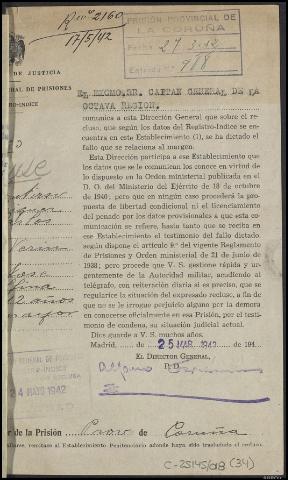 Rn.º 2160
17/5/42
PRISIÓN PROVINCIAL DE
LA CORUÑA
Fecha
Entrada Nº 988
DE JUSTICIA
AL DE PRISIONES
RO-INDICE
EL EXCMO.SR. CAPITAN GENERAL DE LA
OCTAVA REGION,
comunica a esta Dirección General que sobre el re-
cluso, que según los datos del Registro-Indice se en-
cuentra en ese Establecimiento (1), se ha dictado el
fallo que se relaciona al margen.
Esta Dirección participa a ese Establecimiento
que los datos que se le comunican los conoce en virtud de
lo dispuesto en la Orden ministerial publicada en el
D. O. del Ministerio del Ejército de 18 de octubre
de 1940; pero que en ningún caso procederá la pro-
puesta de libertad condicional ni el licenciamiento
del penado por los datos provisionales a que esta co-
municación se refiere, hasta tanto que se reciba en
ese Establecimiento el testimonio del fallo dictado,
según dispone el artículo 9.º del vigente Reglamento
de Prisiones y Orden ministerial de 21 de junio de
1933; pero procede que VS. gestione rápida y ur-
gentemente de la Autoridad militar, acudiendo al
telégrafo, con reiteración diaria si es preciso, que se
regularice la situación del expresado recluso, a fin de
que no se le irrogue perjuicio alguno por la demora
en conocerse oficialmente en esa Prisión, por el testi-
monio de condena, su situación judicial actual.
Dios guarde a VS. muchos años.
Madrid, de 25 MAR 1942 de 194
EL DIRECTOR GENERAL,
P. D.
Jose
22 años
24 MAYO 1942
r de la Prisión Prov de Coruña
C-25145/08 (34)